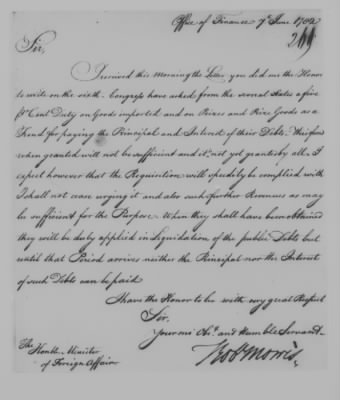 Office of Finance 7th June 1782
Sir,
I received this morning the Letter you did me the Honor
to write on the sixth. Congress have asked from the several States a five
₱ Cent Duty on Goods imported and on Prizes and Prize Goods as a
Fund for paying the Principal and Interest of their Debts. This fund
when granted will not be sufficient and it is not yet granted by all. I
expect however that the Requisition will speedily be complied with
I shall not cease urging it and also such further Revenues as may
be sufficient for the Purpose. When they shall have been obtained
they will be duly applied in Liquidation of the public Debts but
until that Period arrives neither the Principal nor the Interest
of such Debts can be paid
I have the Honor to be with very great Respect
Sir.
Your most Obt. and Humble Servant
Robt Morris
The Honble. Minister
of Foreign Affairs